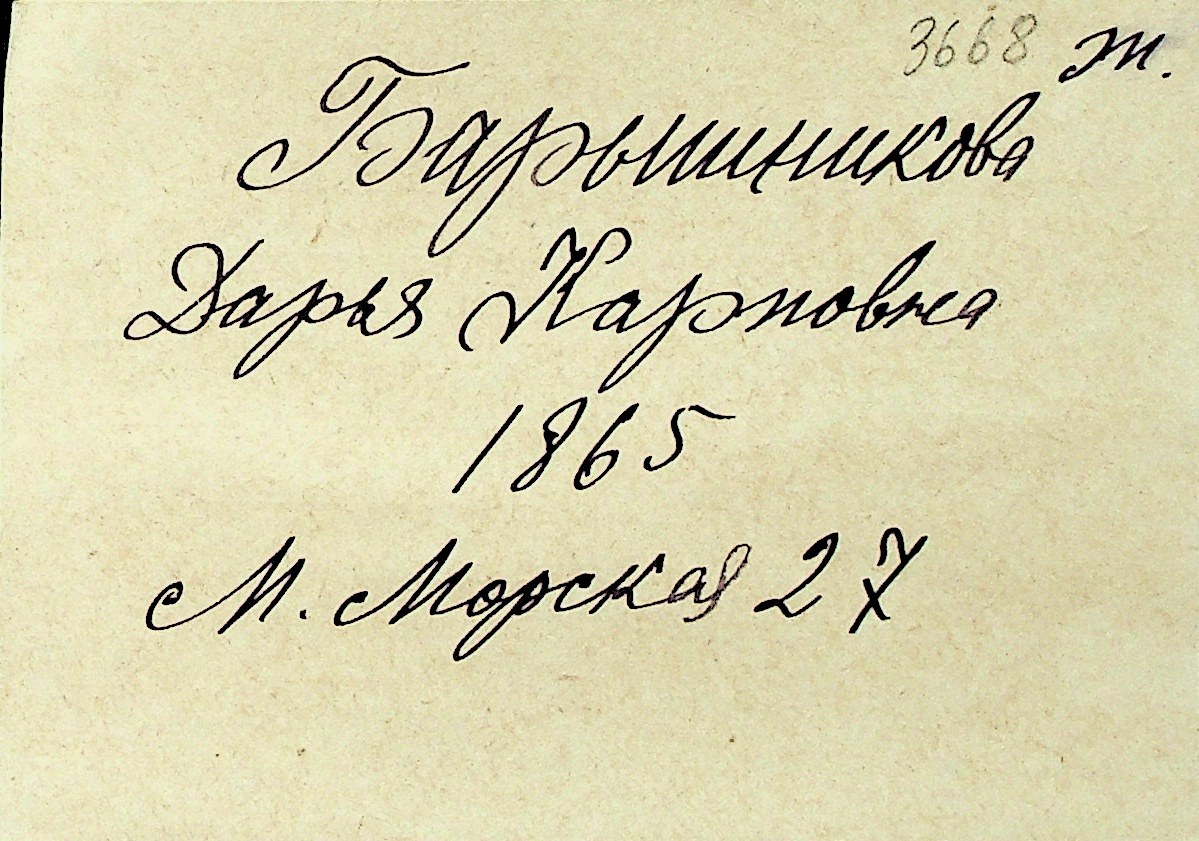 3668 т.
Барышникова
Дарья Карповна
1865
М. Морская 27